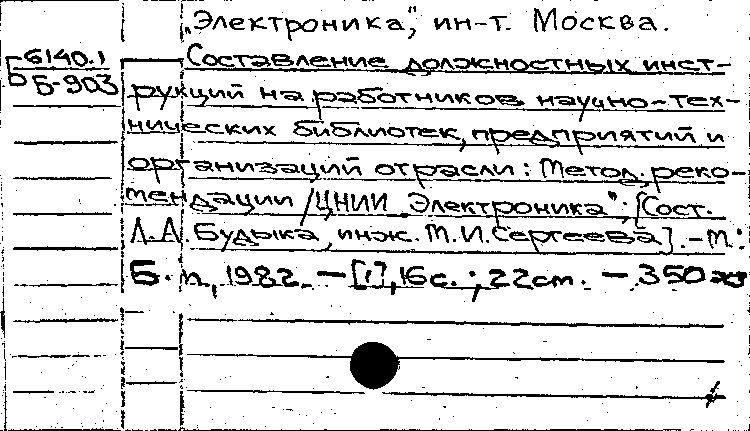 „Электроника", ин-т. Москва.
Б6140.1
Б-903
Составление должностных инст-
рукций на работников научно-тех-
нических библиотек, предприятий и
организаций отрасли: Метод. реко-
мендации / ЦНИИ „Электроника"; [Сост.
Л.А. Будыка, инж. М.И. Сергеева]. - М.:
Б. и., 1982. - [1], 16 с.; 22 см. - 350 экз